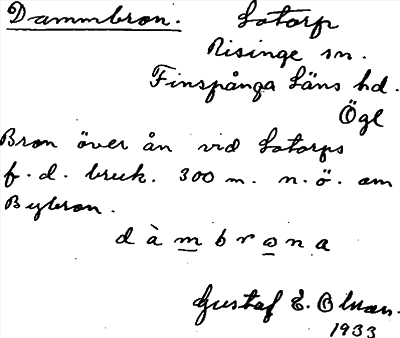 Dammbron. Lotorp
Risinge sn.
Finspånga läns hd.
Ögl
Bron över ån vid Lotorps
f.d. bruk. 300 m. n.ö. om
Bybron.
dàmbrona
Gustaf E.
1933